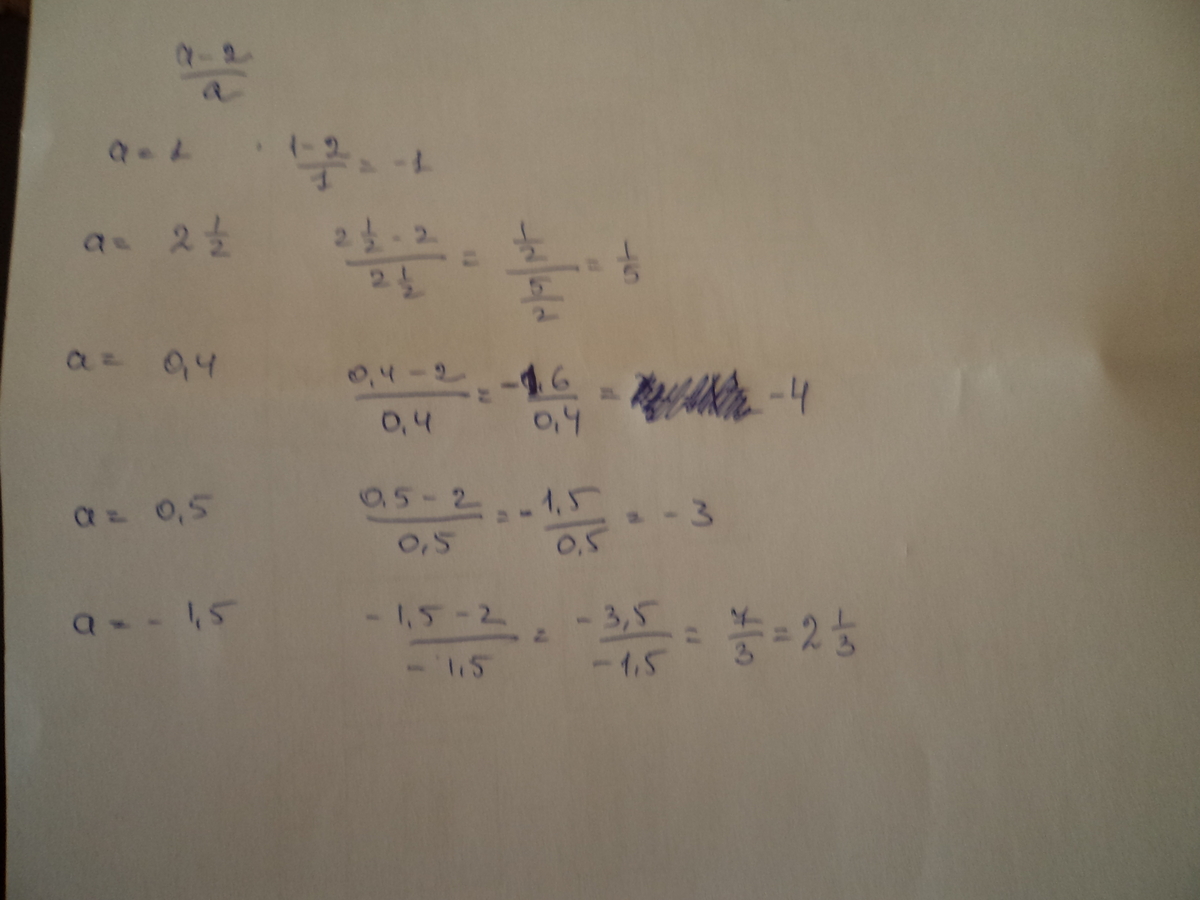 a-2/a
a = 1 1-2/1 = -1
a = 2 1/2 (2 1/2 - 2)/(2 1/2) = (1/2)/(5/2) = 1/5
a = 0,4 (0,4 - 2)/0,4 = -1,6/0,4 = -4
a = 0,5 (0,5 - 2)/0,5 = -1,5/0,5 = -3
a = -1,5 (-1,5 - 2)/-1,5 = -3,5/-1,5 = 7/3 = 2 1/3